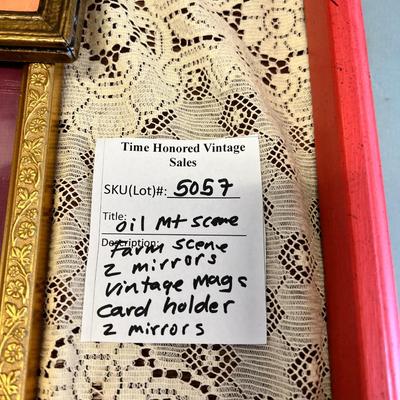 Time Honored Vintage
Sales
SKU(Lot)#: 5057
Title: oil Mt scene
Description: Farm scene
2 mirrors
vintage mags
Card holder
2 mirrors